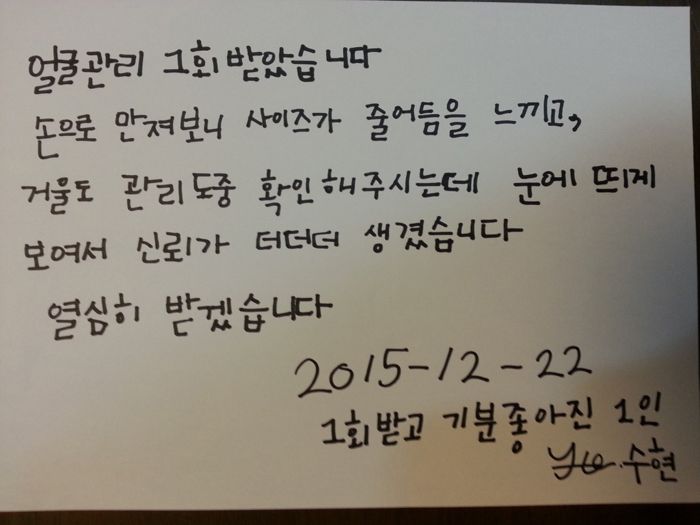 얼굴관리 1회 받았습니다
손으로 만져보니 사이즈가 줄어듬을 느끼고,
거울도 관리도중 확인해주시는데 눈에 띄게
보여서 신뢰가 더더더 생겼습니다
열심히 받겠습니다
2015-12-22
1회받고 기분좋아진 1인
수현